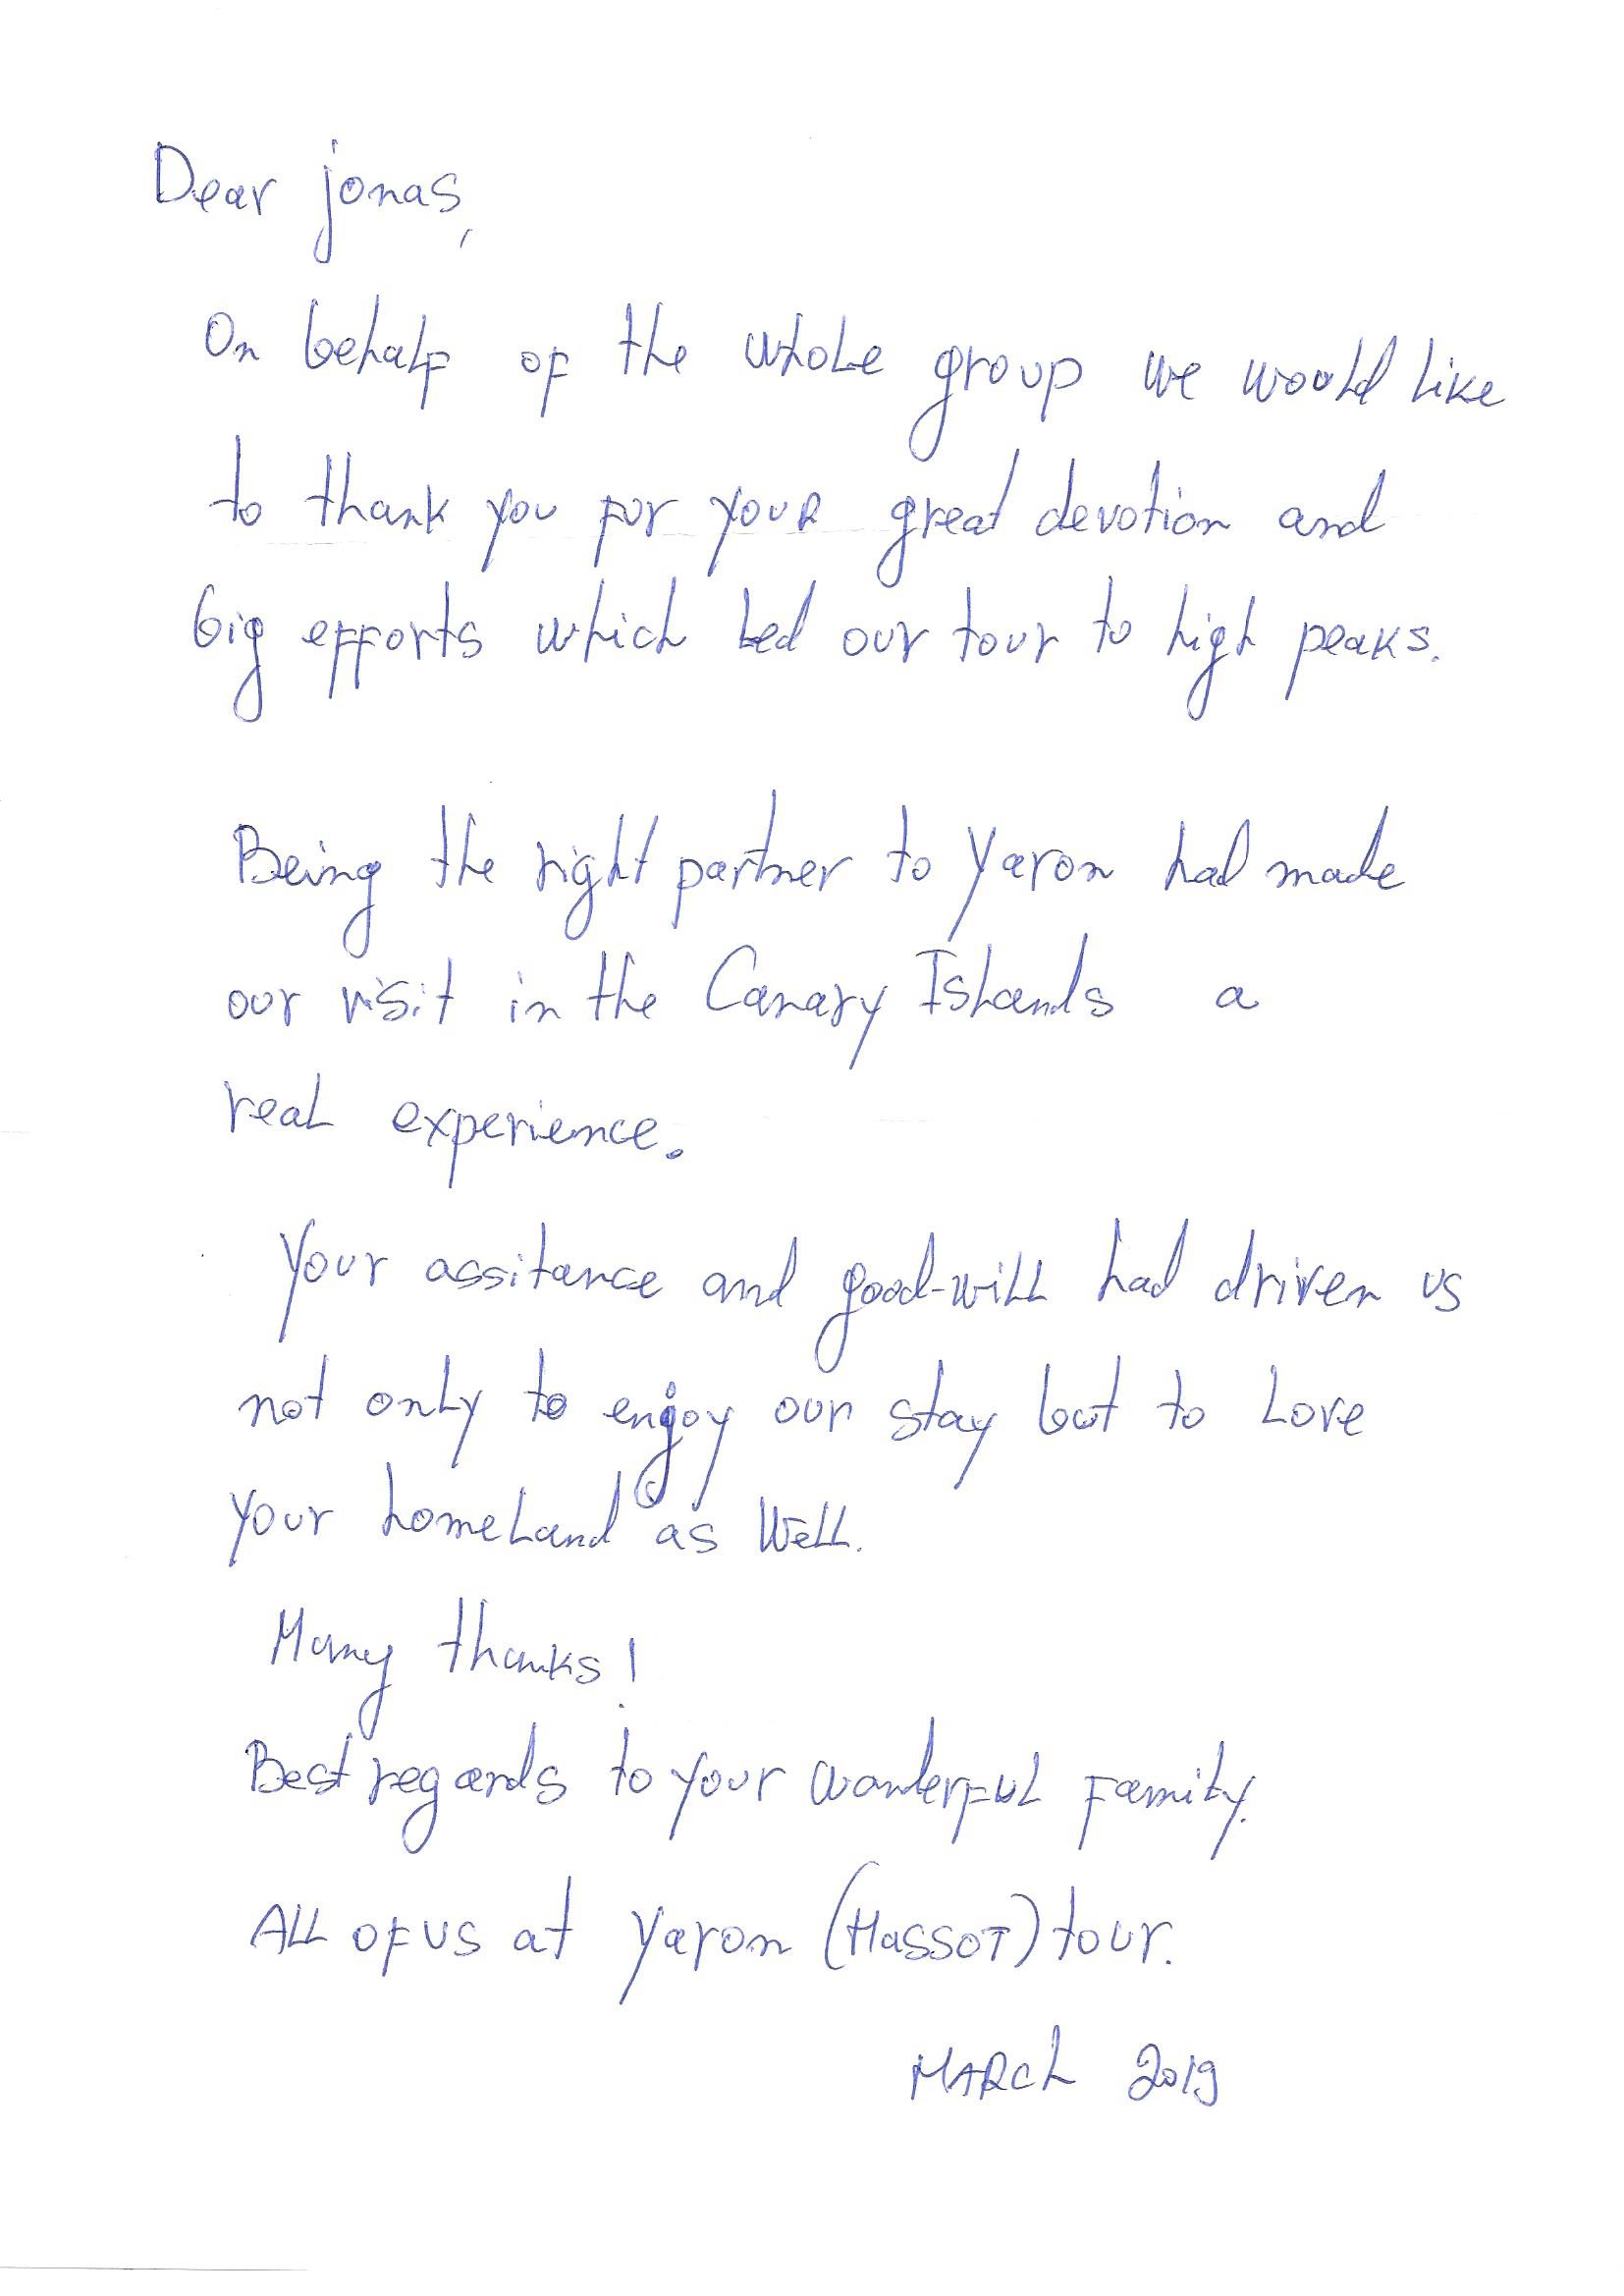 Dear jonas,
On behalf of the whole group we would like
to thank you for your great devotion and
big efforts which led our tour to high peaks.
Being the right partner to Yaron had made
our visit in the Canary Islands a
real experience.
Your assitance and good-will had driven us
not only to enjoy our stay but to love
your homeland as well.
Many thanks!
Best regards to your wonderful family.
All of us at Yaron (Massot) tour.
MARCh 2019